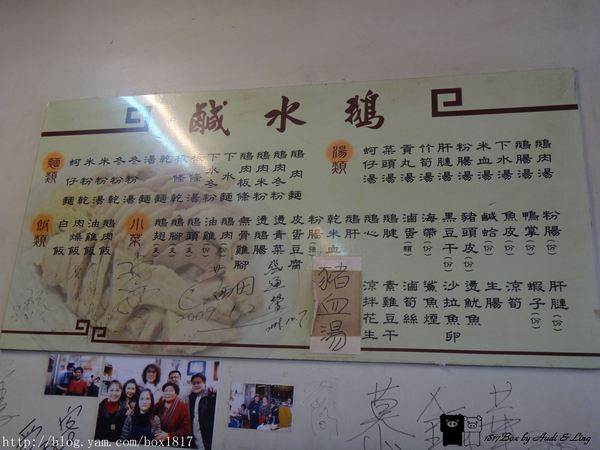 鹹水鵝
麵類
蚵仔麵
米粉乾
米粉湯
冬粉乾
冬粉湯
湯麵
乾麵
板條
板條
下水冬粉
下水麵
鵝肉板條
鵝肉米粉
鵝肉冬粉
鵝肉麵
湯類
蚵仔湯
菜頭湯
貢丸湯
竹筍湯
肝腱湯
粉腸湯
米血湯
下水湯
鵝腸湯
鵝肉湯
飯類
白飯
肉燥飯
油雞飯
鵝肉飯
小菜
鵝翅
鵝腳
鵝頭
油雞
鵝肉
無骨雞腳
燙鵝腸
燙青菜
皮蛋豆腐
粉腸
乾米血
鵝肝
鵝心
鵝腱
滷蛋
海帶
黑豆干
豬頭皮
鹹蛤
魚皮
鴨掌
粉腸
涼拌花生
素雞豆干
滷筍絲
鯊魚煙
沙拉魚卵
燙魷魚
生腸
涼筍
蝦子
肝腱
豬血湯
2009
http://blog.yam.com/box1817
1817Box by Audi & Ling